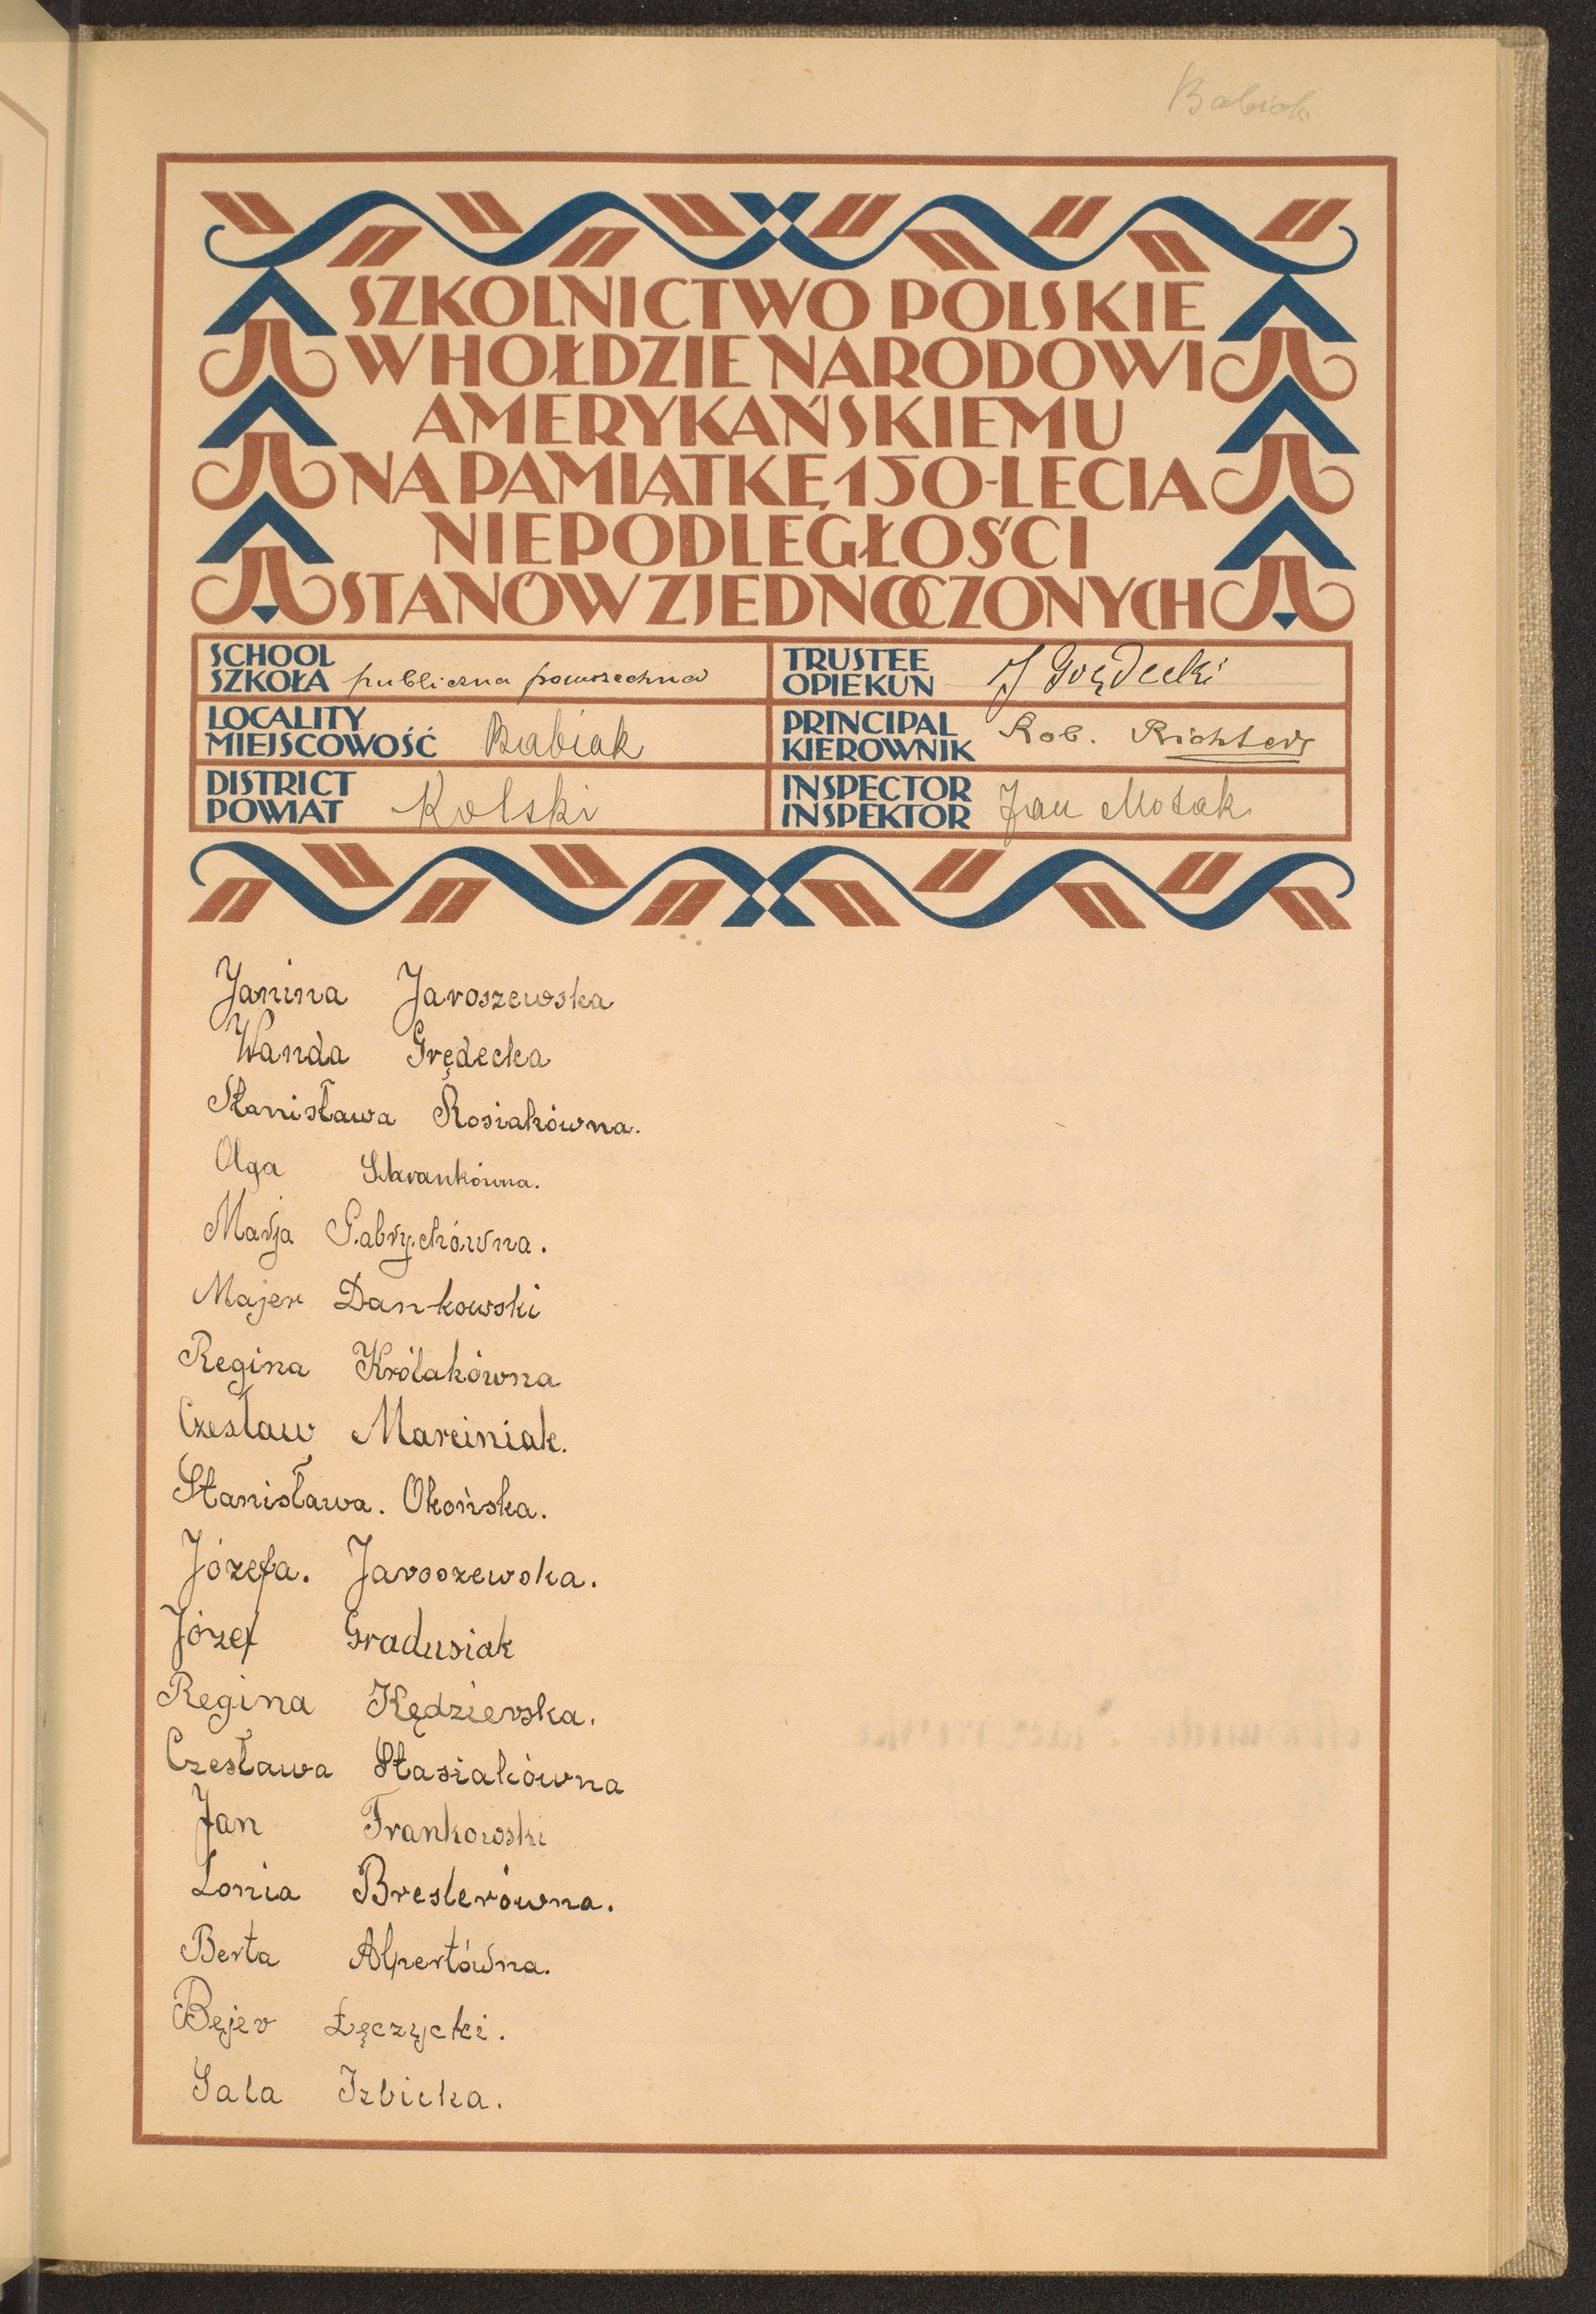 Babiak
SZKOLNICTWO POLSKIE
W HOŁDZIE NARODOWI
AMERYKAŃSKIEMU
NA PAMIĄTKĘ 150-LECIA
NIEPODLEGŁOŚCI
STANÓW ZJEDNOCZONYCH
SCHOOL
SZKOŁA publiczna powszechna
TRUSTEE
OPIEKUN J Grędecki
LOCALITY
MIEJSCOWOŚĆ Babiak
PRINCIPAL
KIEROWNIK Rob. Richter
DISTRICT
POWIAT Kolski
INSPECTOR
INSPEKTOR Jan Mozak
Janina Jaroszewska
Wanda Grędecka
Stanisława Rosiakówna.
Olga
Marja Gabrychówna.
Majer Dankowski
Regina Królakówna
Czesław Marciniak.
Stanisława. Okońska.
Józefa. Jaroszewska.
Józef Gradusiak
Regina Kędzierska.
Czesława Stasiakówna
Jan Frankowski
Lonia Breslerówna.
Berta Alpertówna.
Bejer Łęczycki.
Sala Izbicka.